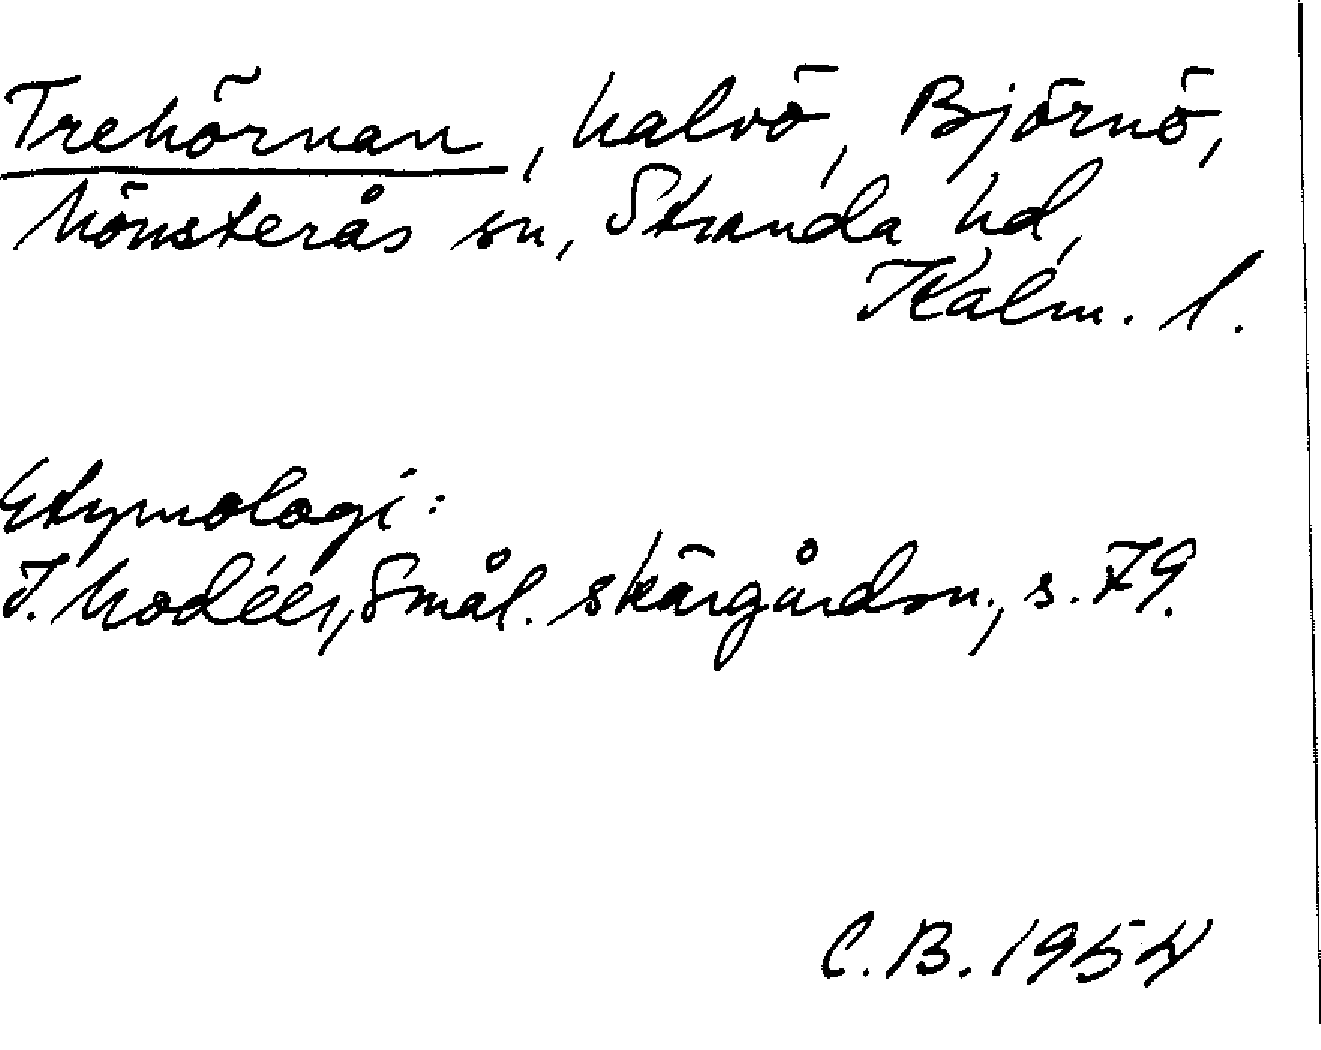 Trehörnan, halvö, Björnö,
Mönsterås sn, Stranda hd,
Kalm. l.
Etymologi:
I. Modéer, Smål. skärgårdsn., s. 79.
C.B. 1954